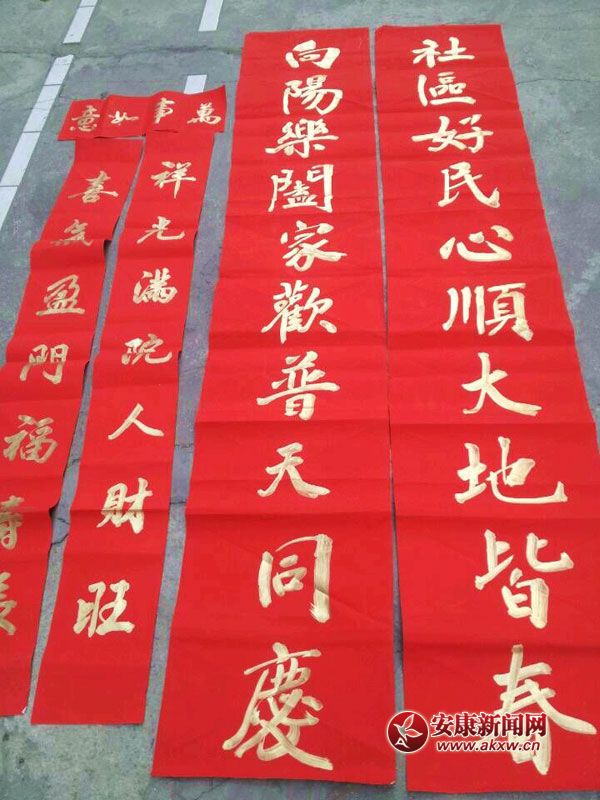 社區好民心順大地皆春
向陽樂闔家歡普天同慶
萬事如意
祥光滿院人財旺
喜氣盈門福壽長
安康新闻网
www.akxw.cn